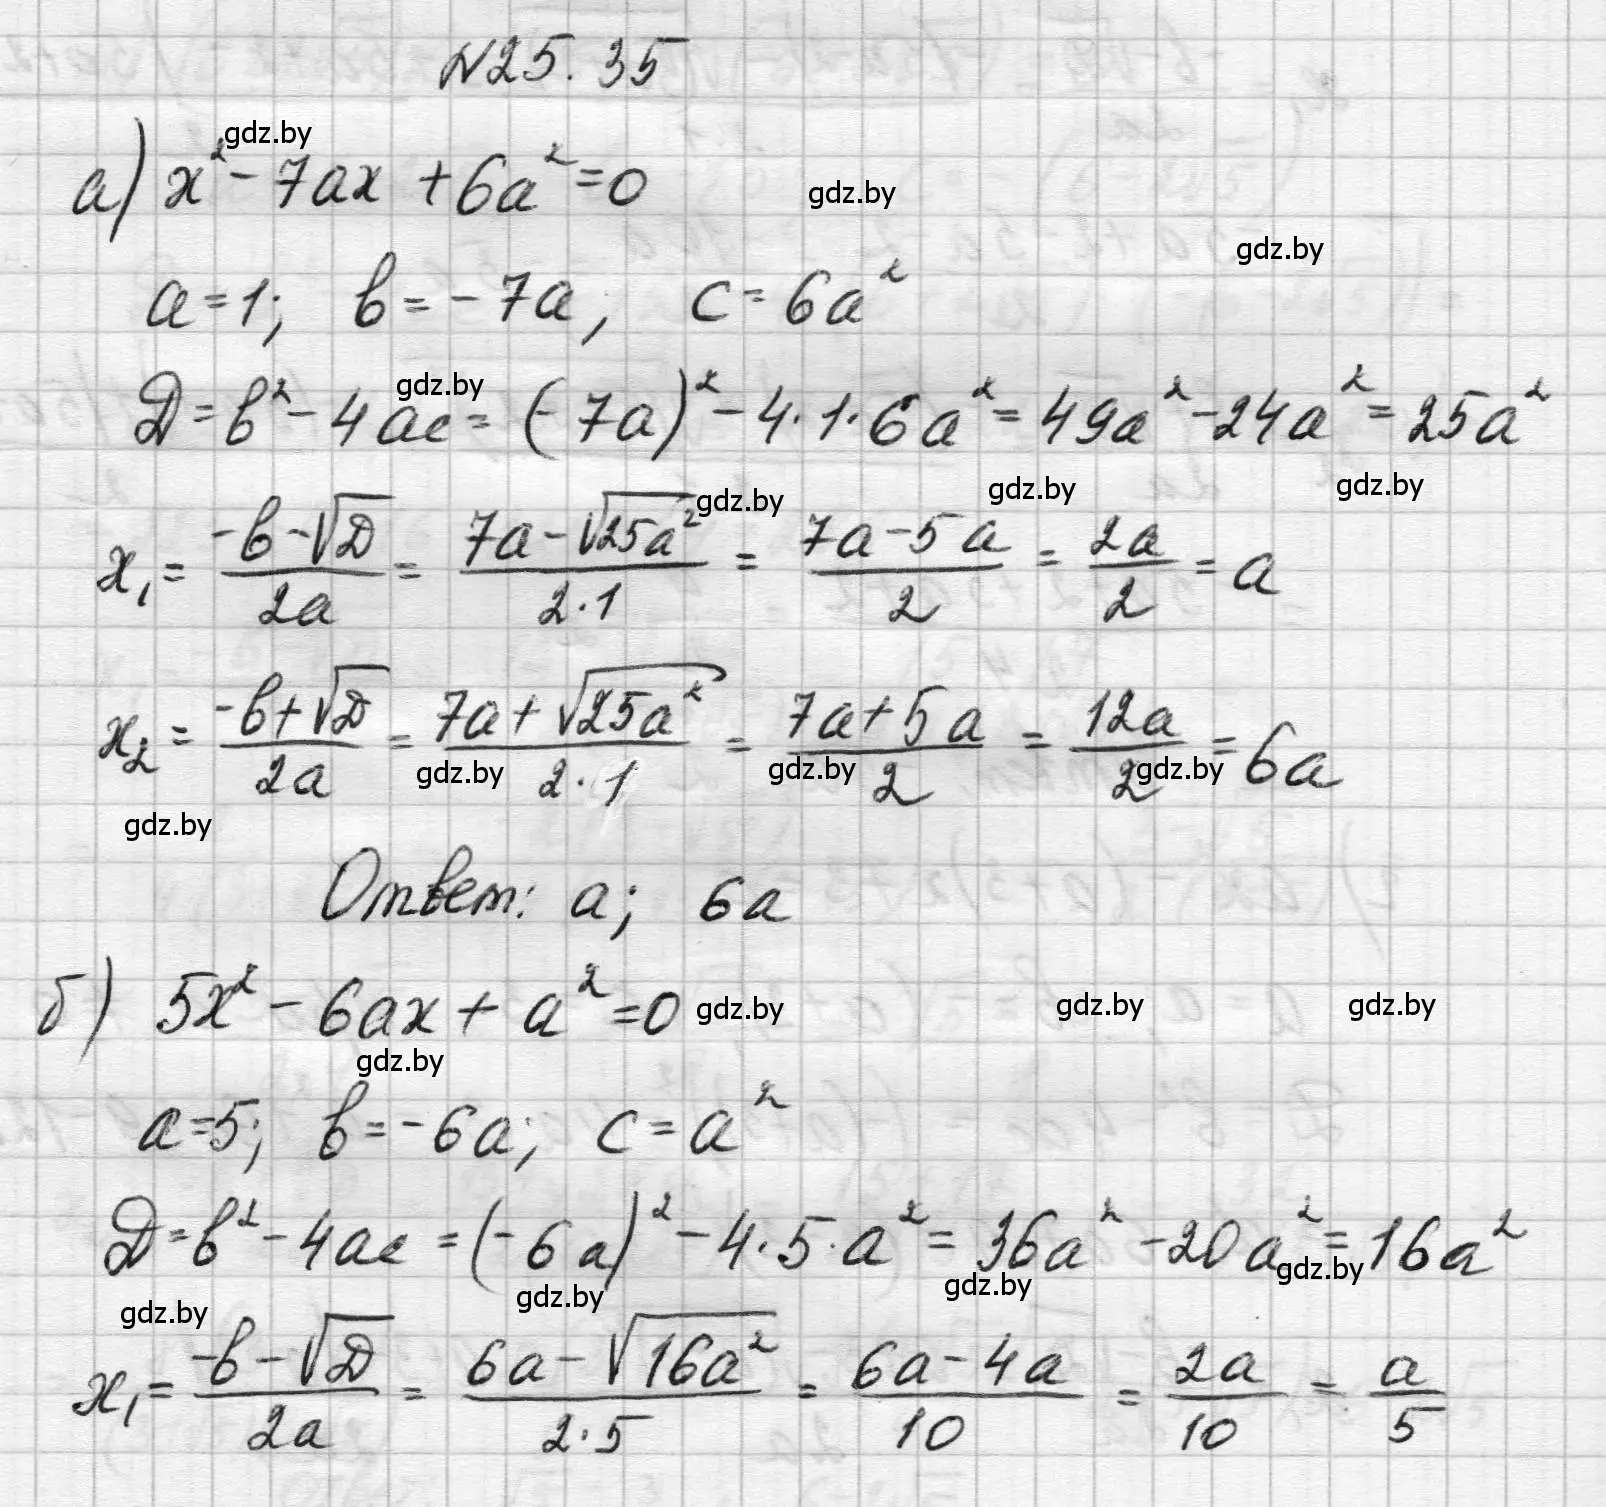 N25.35
gdz.by
а) x² - 7ax + 6a² = 0
gdz.by
gdz.by
a = 1; b = -7a; c = 6a²
gdz.by
Д = b² - 4ac = (-7a)² - 4·1·6a² = 49a² - 24a² = 25a²
gdz.by gdz.by gdz.by
x₁ = (-b - √Д)/(2a) = (7a - √(25a²))/(2·1) = (7a - 5a)/2 = 2a/2 = a
x₂ = (-b + √Д)/(2a) = (7a + √(25a²))/(2·1) = (7a + 5a)/2 = 12a/2 = 6a
gdz.by gdz.by gdz.by
gdz.by
Ответ: a; 6a
б) 5x² - 6ax + a² = 0
gdz.by gdz.by gdz.by
gdz.by
a = 5; b = -6a; c = a²
Д = b² - 4ac = (-6a)² - 4·5·a² = 36a² - 20a² = 16a²
gdz.by gdz.by gdz.by
gdz.by
x₁ = (-b - √Д)/(2a) = (6a - √(16a²))/(2·5) = (6a - 4a)/10 = 2a/10 = a/5